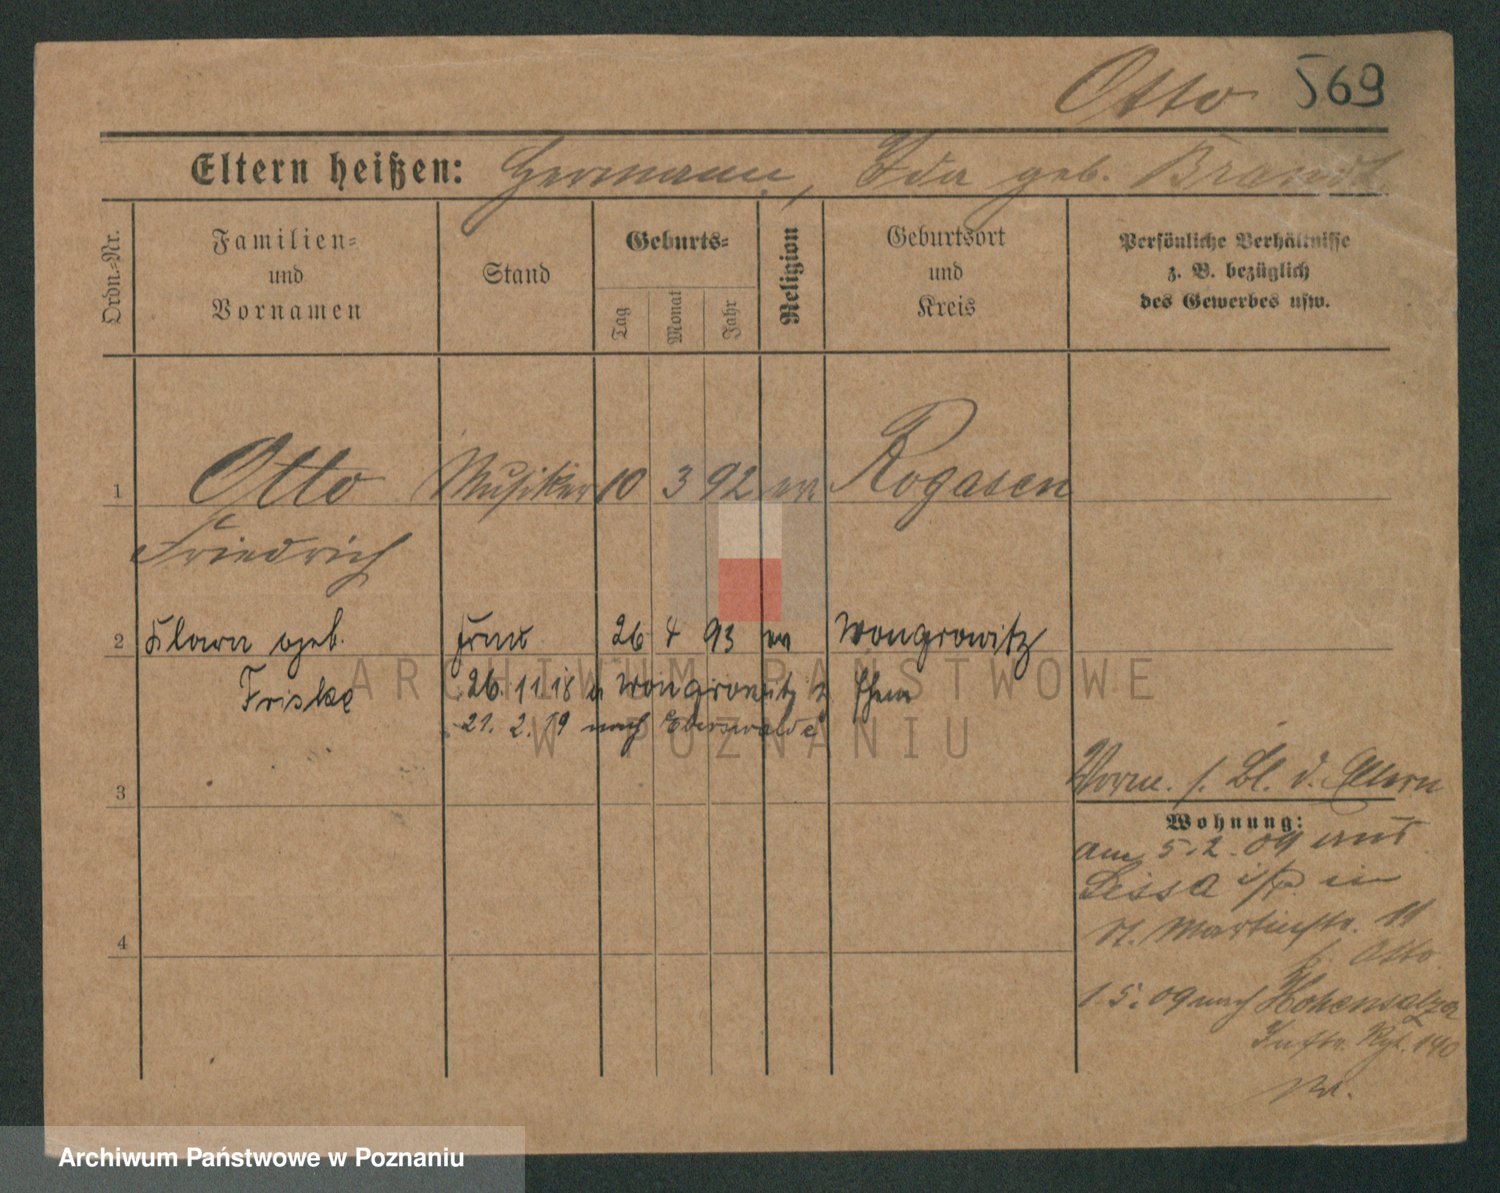 Otto 569
Eltern heißen: Hermann, Ida geb. Brandt
Ordn.=Nr.
Familien=
und
Vornamen
Stand
Geburts=
Tag
Monat
Jahr
Religion
Geburtsort
und
Kreis
Persönliche Verhältnisse
z. B. bezüglich
des Gewerbes usw.
1 Otto Musiker 10 3 92 ev Rogasen
Friedrich
2 Klawn geb. Frau 26 4 93 ev Wongrowitz
Friske 26.11.18 a Wongrowitz z Ehem
21. 2. 19 nach Eberswalde
3
Vorm. s. Bl. d. Eltern
Wohnung:
am 5.2.09 aus
Lissa i/P. in
St. Martinstr. 11
b. Otto
4
1.5.09 nach Hohensalza
Inftr. Rgt. 140
ARCHIWUM PAŃSTWOWE
W POZNANIU
Archiwum Państwowe w Poznaniu